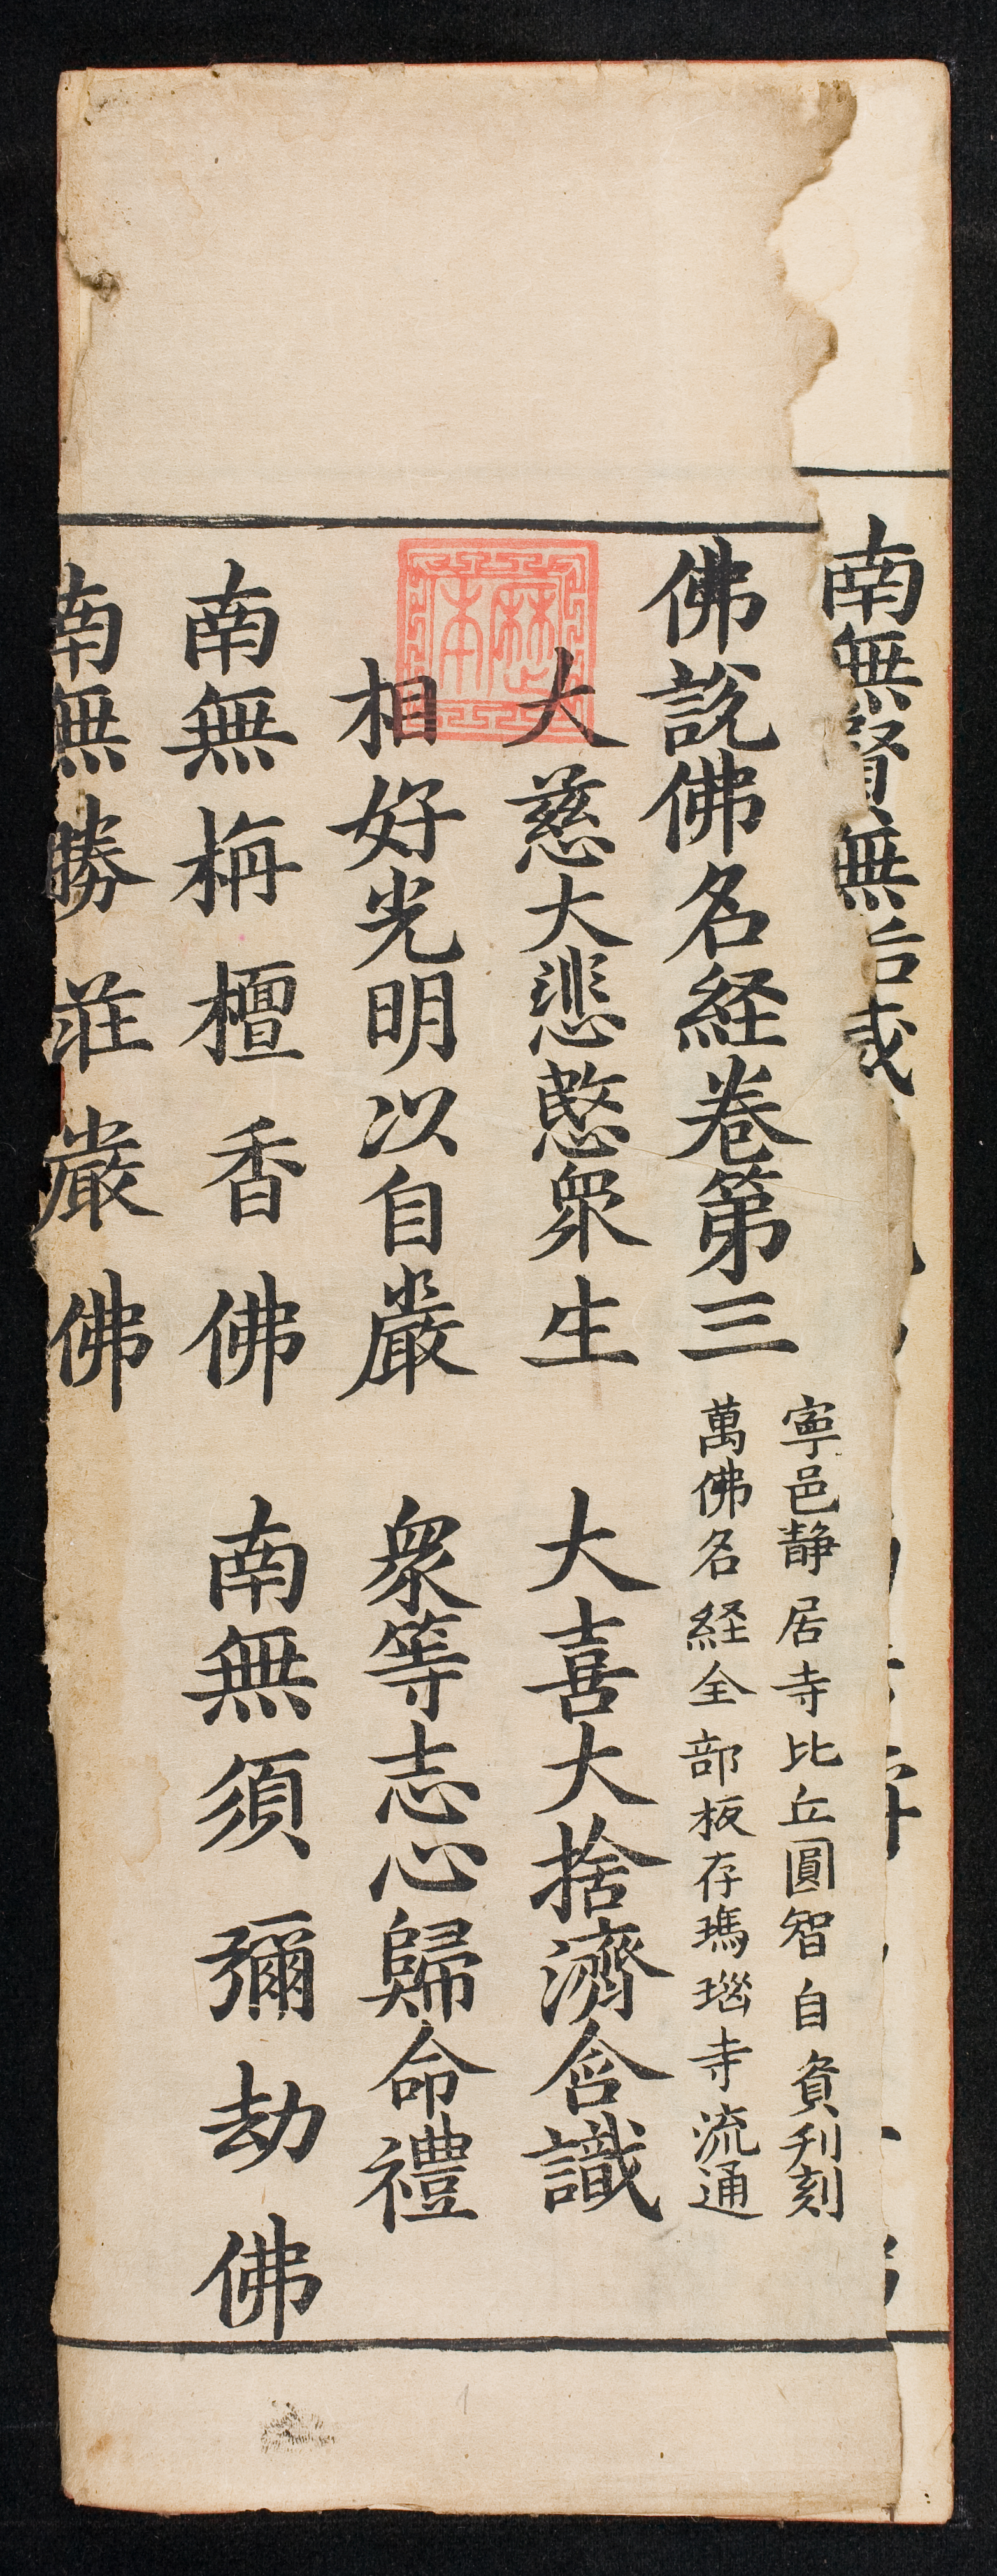 南無
無
佛說佛名経卷第三
寕邑静居寺比丘圓智自負刋刻
萬佛名経全部板存瑪瑙寺流通
大慈大悲愍衆生 大喜大捨濟含識
相好光明以自嚴 衆等志心歸命禮
南無栴檀香佛 南無須彌劫佛
南無勝莊嚴佛